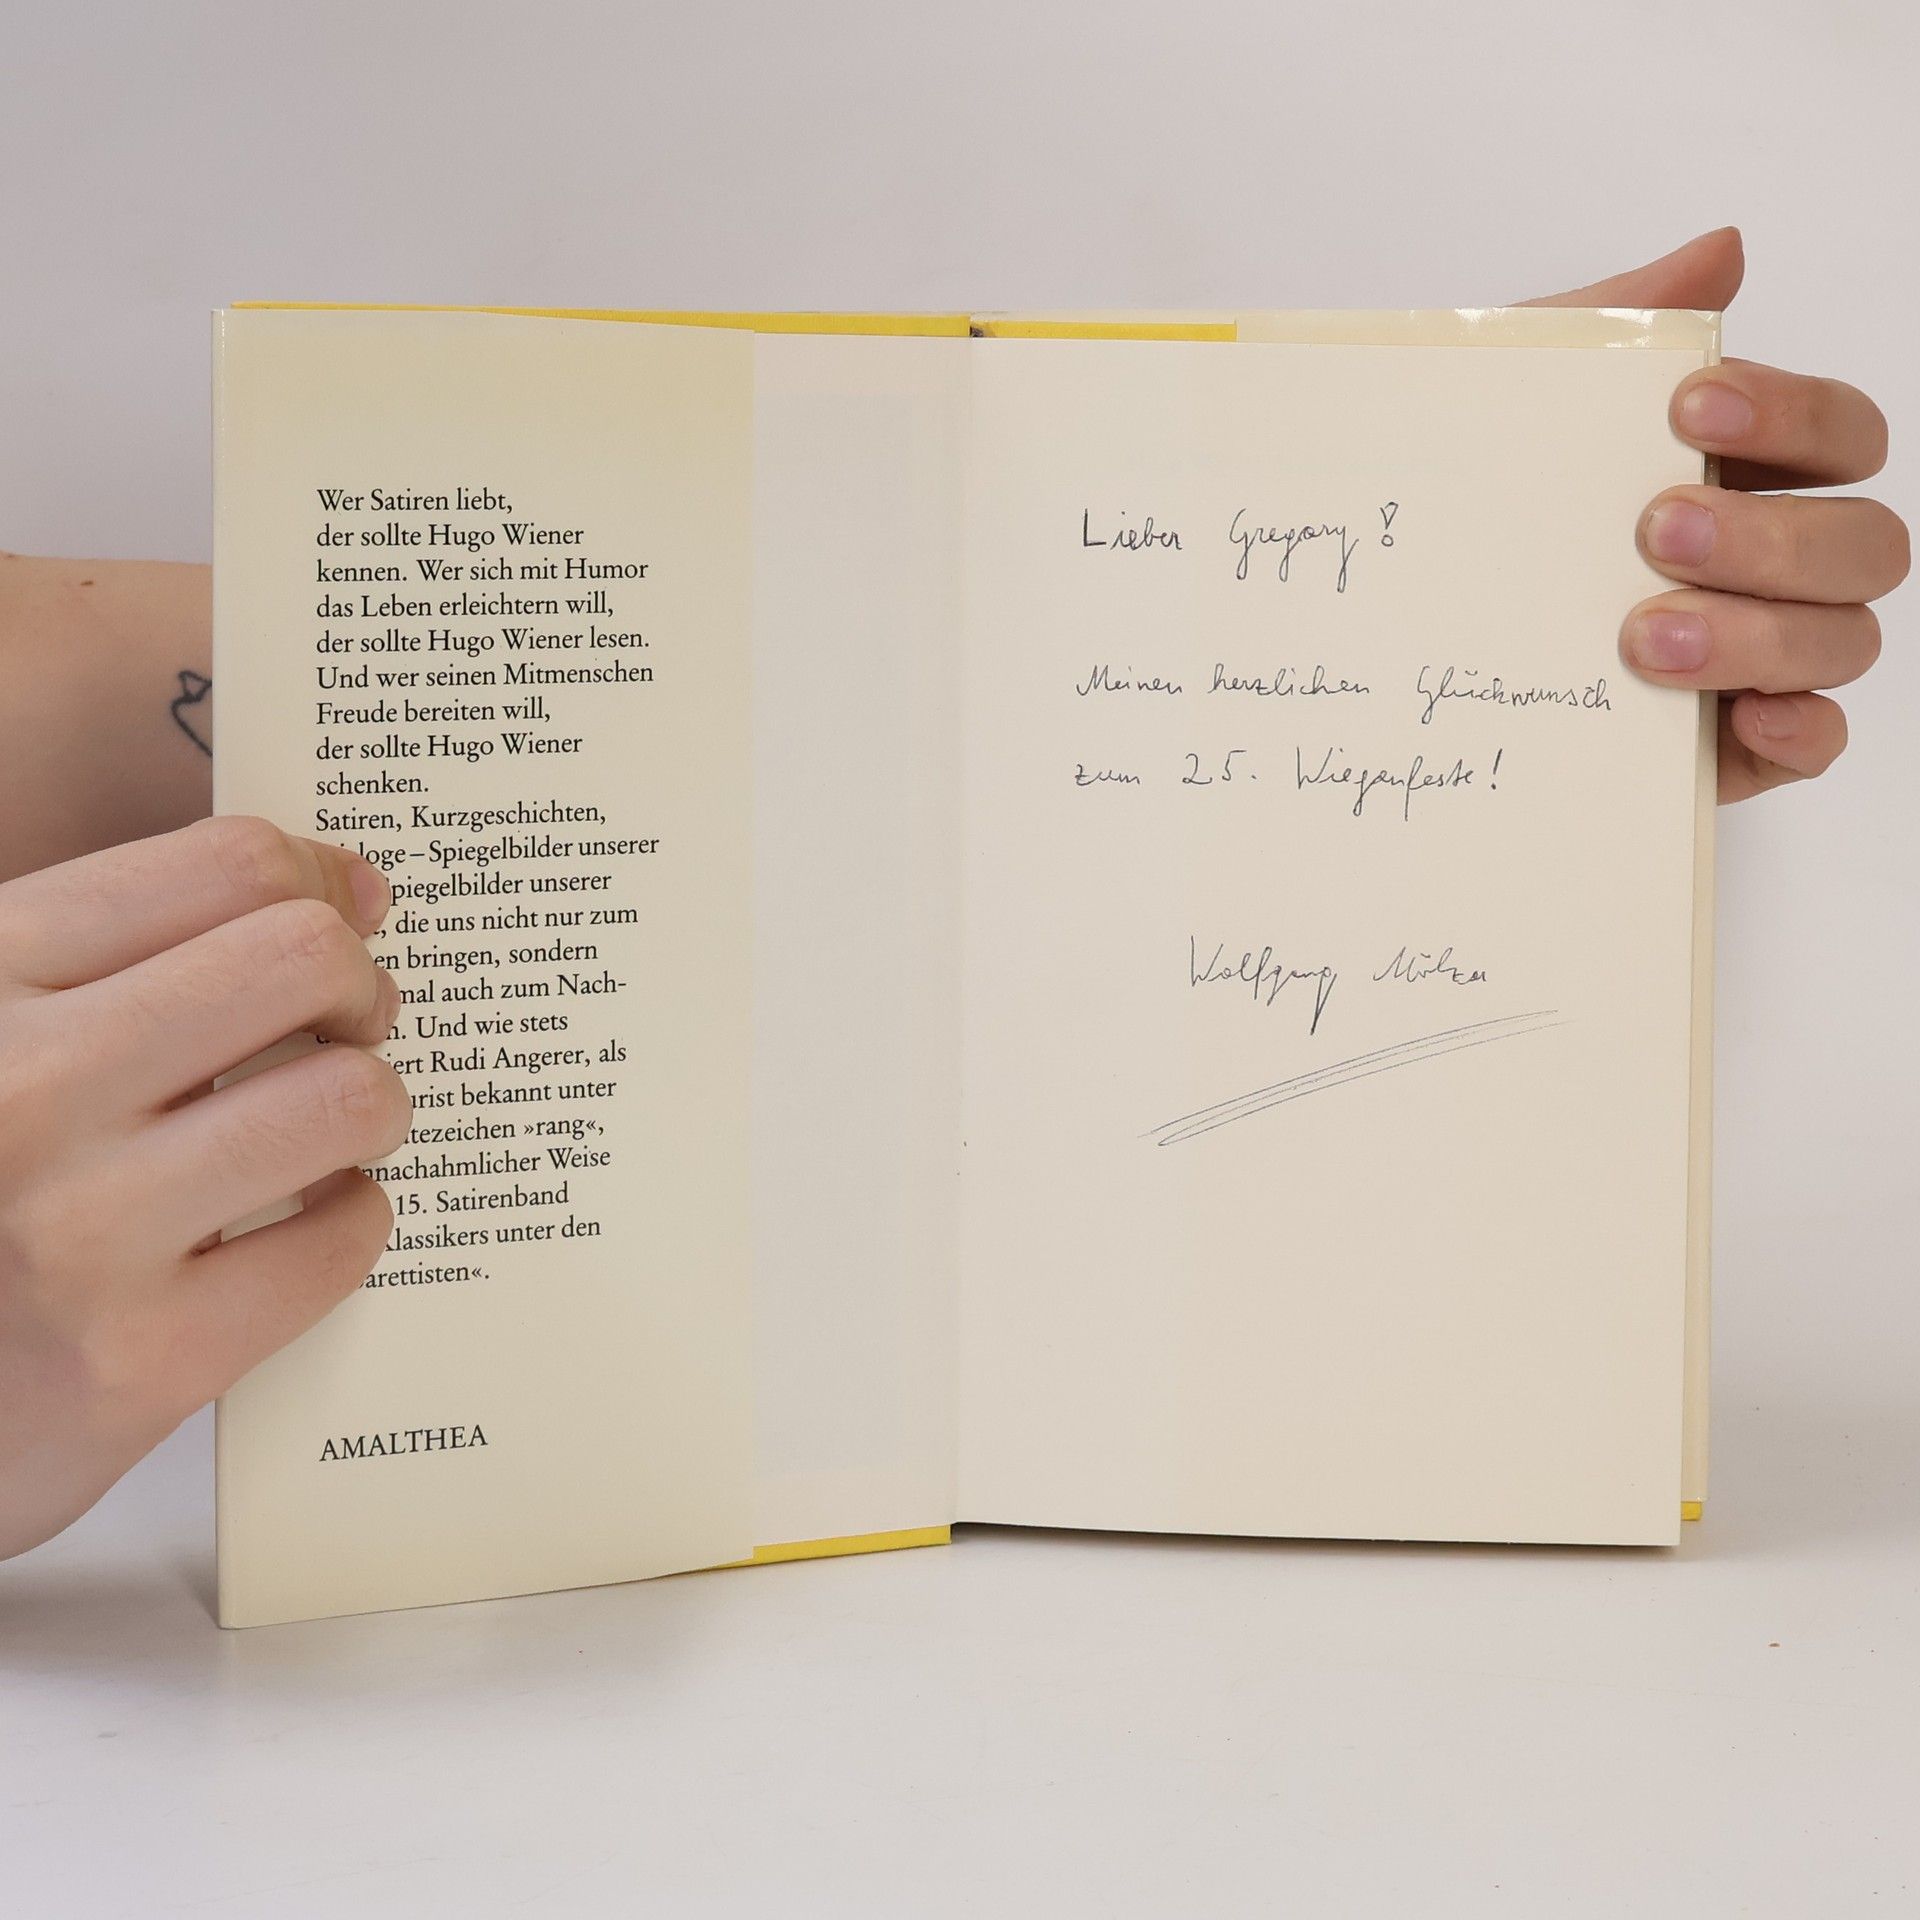 Wer Satiren liebt,
der sollte Hugo Wiener
kennen. Wer sich mit Humor
das Leben erleichtern will,
der sollte Hugo Wiener lesen.
Und wer seinen Mitmenschen
Freude bereiten will,
der sollte Hugo Wiener
schenken.
Satiren, Kurzgeschichten,
loge – Spiegelbilder unserer
piegelbilder unserer
, die uns nicht nur zum
en bringen, sondern
mal auch zum Nach-
n. Und wie stets
iert Rudi Angerer, als
urist bekannt unter
tezeichen »rang«,
nnachahmlicher Weise
15. Satirenband
Klassikers unter den
arettisten«.
AMALTHEA
Lieber Gregory!
Meinen herzlichen Glückwunsch
zum 25. Wiegenfeste!
Wolfgang